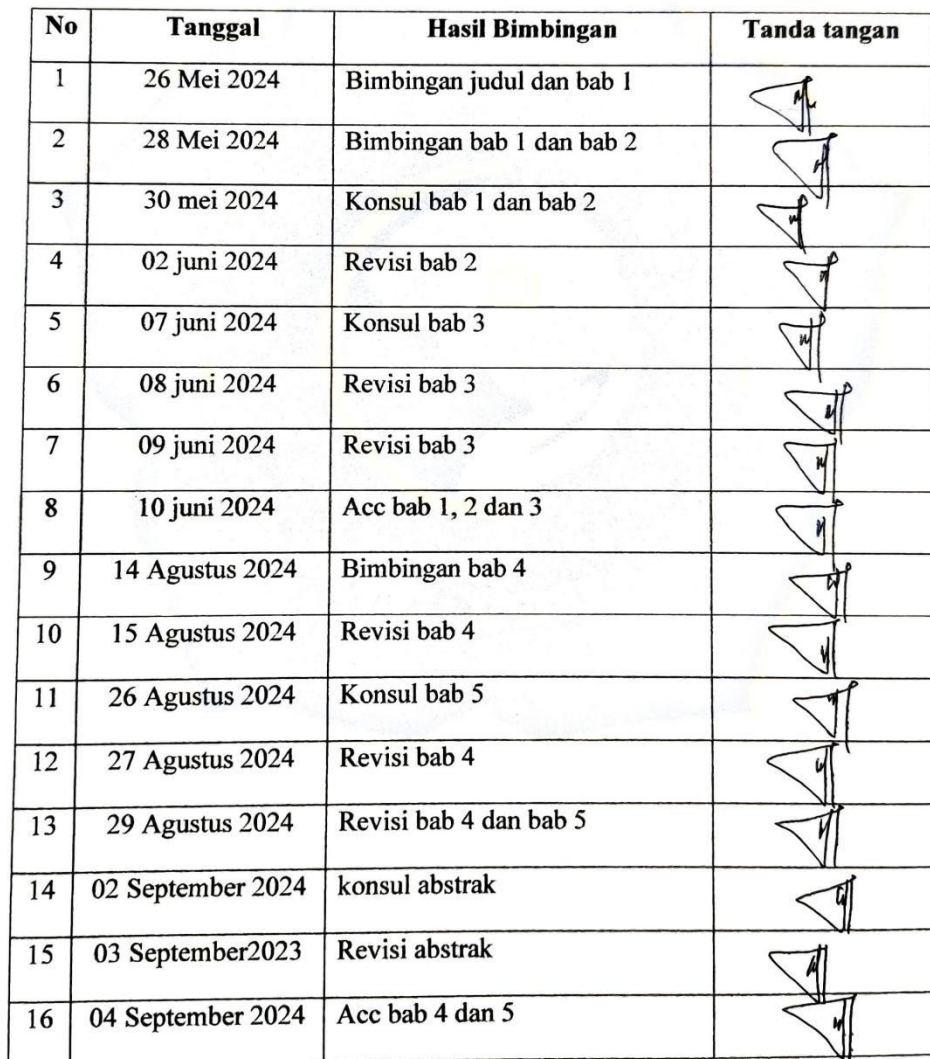 No Tanggal Hasil Bimbingan Tanda tangan
1 26 Mei 2024 Bimbingan judul dan bab 1
2 28 Mei 2024 Bimbingan bab 1 dan bab 2
3 30 mei 2024 Konsul bab 1 dan bab 2
4 02 juni 2024 Revisi bab 2
5 07 juni 2024 Konsul bab 3
6 08 juni 2024 Revisi bab 3
7 09 juni 2024 Revisi bab 3
8 10 juni 2024 Acc bab 1, 2 dan 3
9 14 Agustus 2024 Bimbingan bab 4
10 15 Agustus 2024 Revisi bab 4
11 26 Agustus 2024 Konsul bab 5
12 27 Agustus 2024 Revisi bab 4
13 29 Agustus 2024 Revisi bab 4 dan bab 5
14 02 September 2024 konsul abstrak
15 03 September2023 Revisi abstrak
16 04 September 2024 Acc bab 4 dan 5